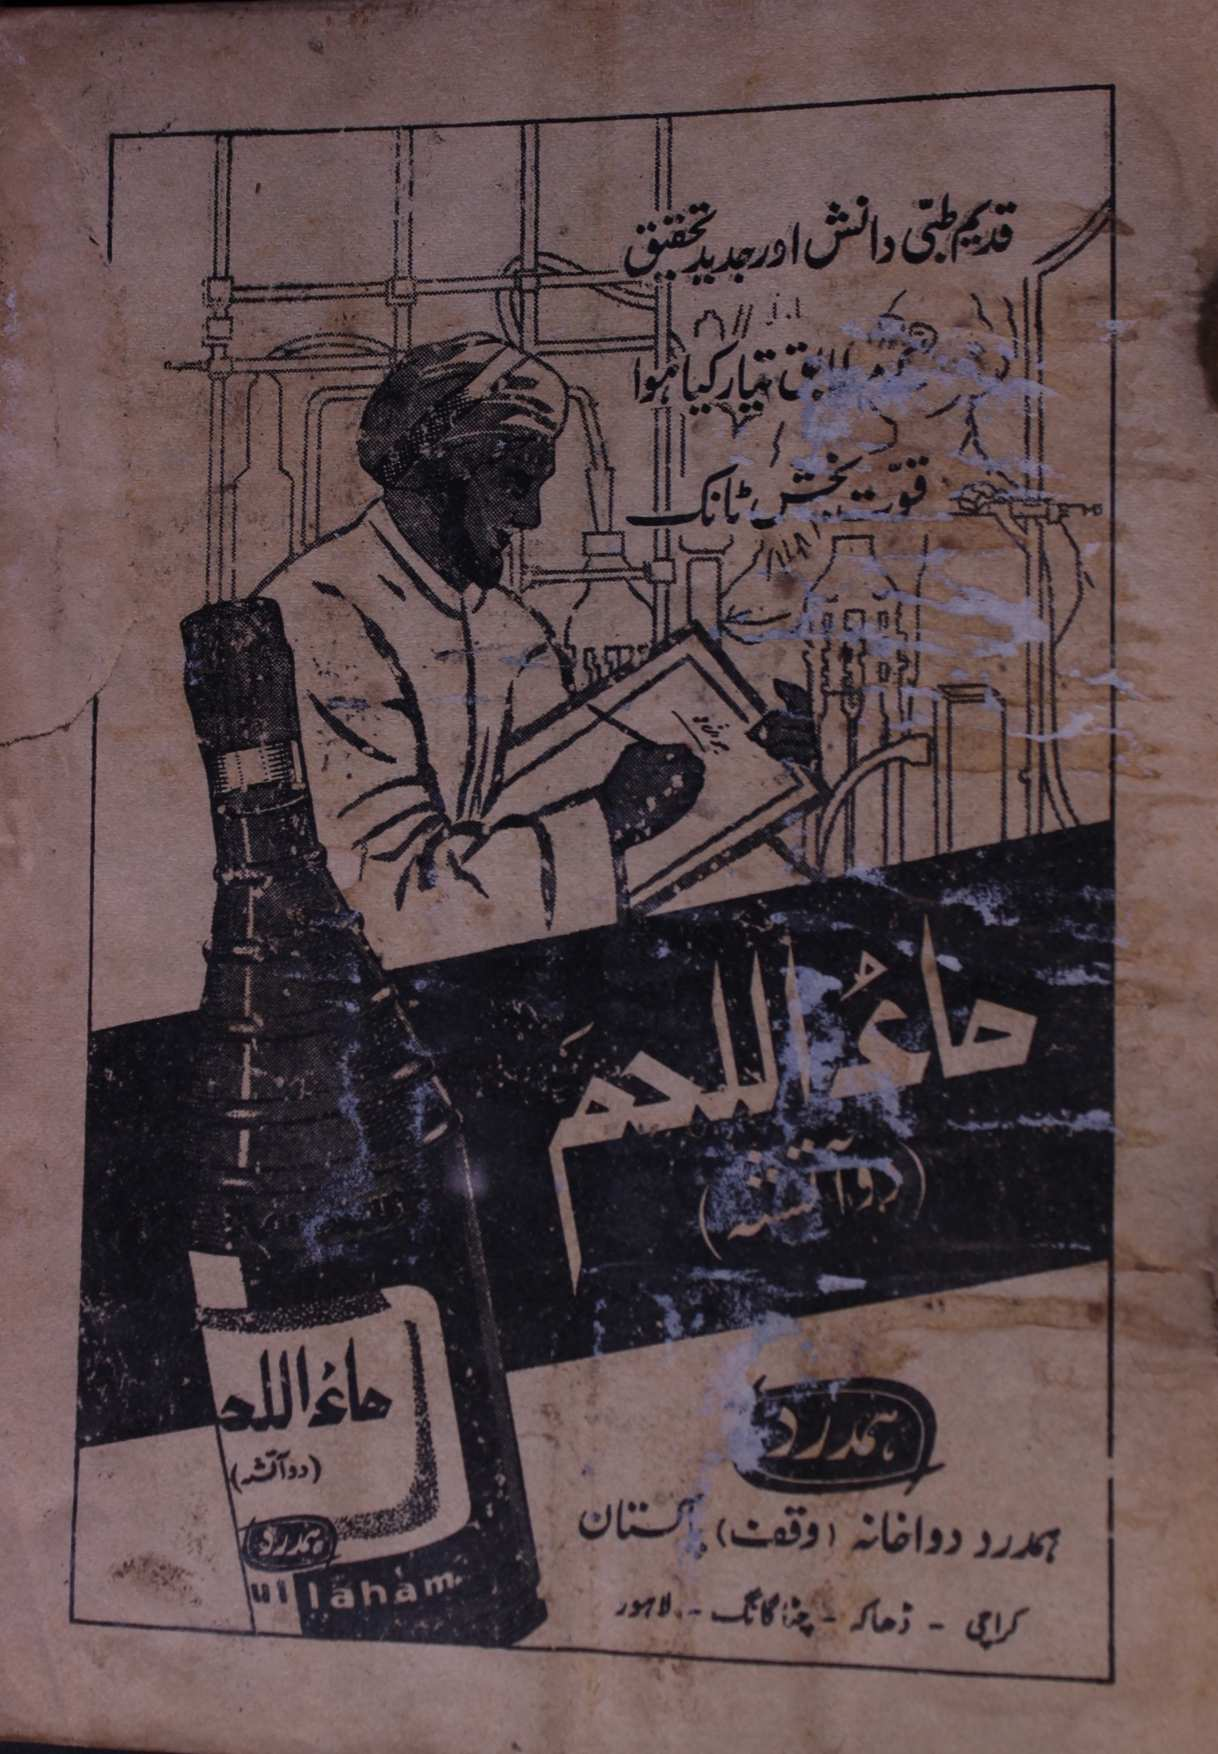 قدیم طبّی دانش اور جدید تحقیق
کے مطابق تیار کیا ہوا
قوّت بخش ٹانک
ماءُ اللحم
(دوآتشہ)
ماءُ اللحـ
(دوآتشہ)
ہمدرد
ul laham
ہمدرد
ہمدرد دواخانہ (وقف) پاکستان
کراچی - ڈھاکہ - چٹاگانگ - لاہور